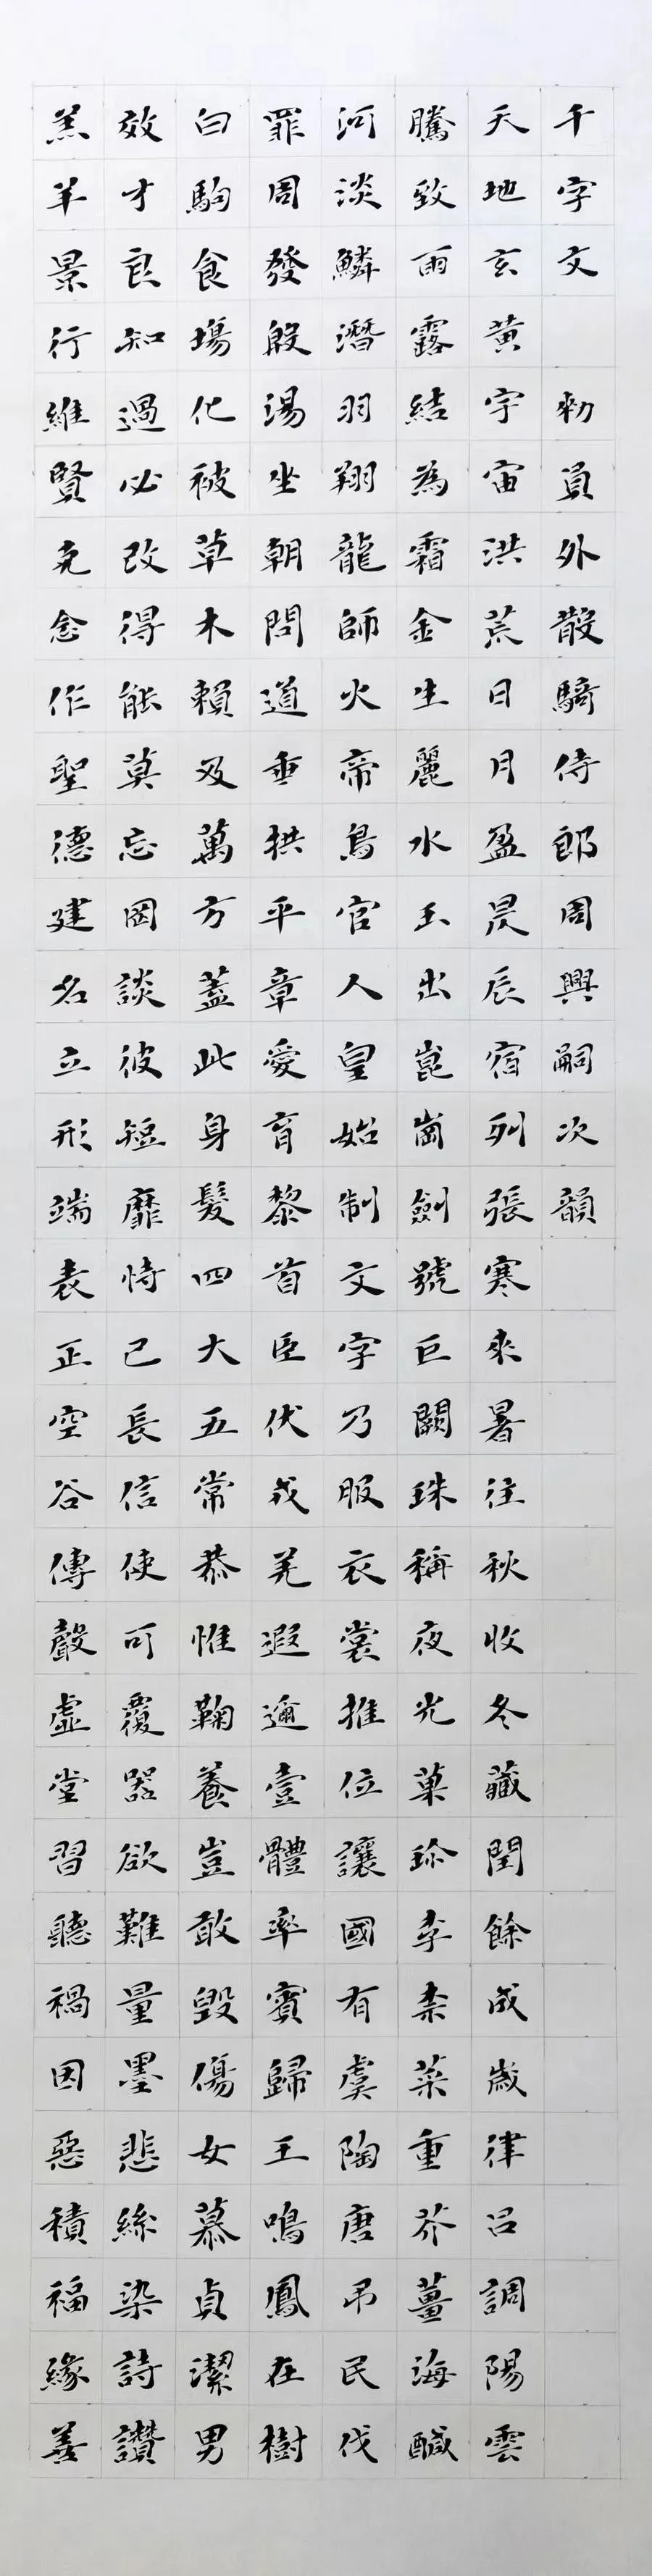 千字文 勑員外散騎侍郎周興嗣次韻
天地玄黄宇宙洪荒日月盈昃辰宿列張寒來暑往秋收冬藏閏餘成歲律吕調陽雲
騰致雨露結為霜金生麗水玉出崑崗劍號巨闕珠稱夜光菓珎李柰菜重芥薑海醎
河淡鱗潛羽翔龍師火帝鳥官人皇始制文字乃服衣裳推位讓國有虞陶唐吊民伐
罪周發殷湯坐朝問道垂拱平章愛育黎首臣伏戎羌遐邇壹體率賓歸王鳴鳳在樹
白駒食場化被草木賴及萬方蓋此身髮四大五常恭惟鞠養豈敢毀傷女慕貞潔男
效才良知過必改得能莫忘罔談彼短靡恃己長信使可覆器欲難量墨悲絲染詩讚
羔羊景行維賢克念作聖德建名立形端表正空谷傳聲虛堂習聽禍因惡積福緣善